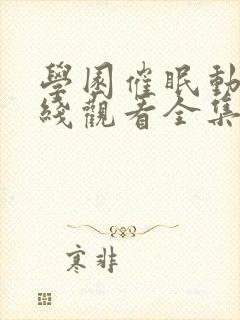 學園催眠動
綫觀看全集
寒非